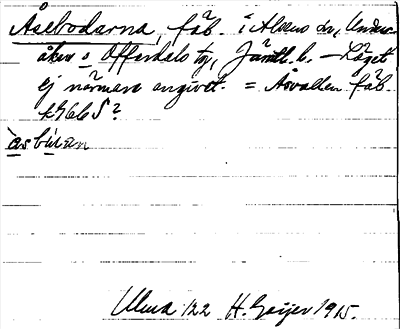 Åsebodarna, fäb. i Alsens sn, Unders-
åkers o Offerdals tg, Jämtl. l. – Läget
ej närmare angivet. = Åsvallen fäb.
åsbu̇an
Ulma 122 H. Geijer 1915.